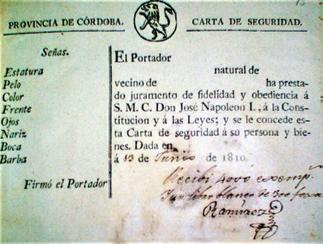 PROVINCIA DE CÓRDOBA. CARTA DE SEGURIDAD.
Señas.
Estatura
Pelo
Color
Frente
Ojos
Nariz
Boca
Barba
Firmó el Portador
El Portador
natural de
vecino de ha presta-
do juramento de fidelidad y obediencia á
S. M. C. Don José Napoleon I., á la Cons-
titucion y á las Leyes; y se le concede es-
ta Carta de seguridad á su persona y bie-
nes. Dada en
á 13 de Junio de 1810.
Recibi
Ramirez